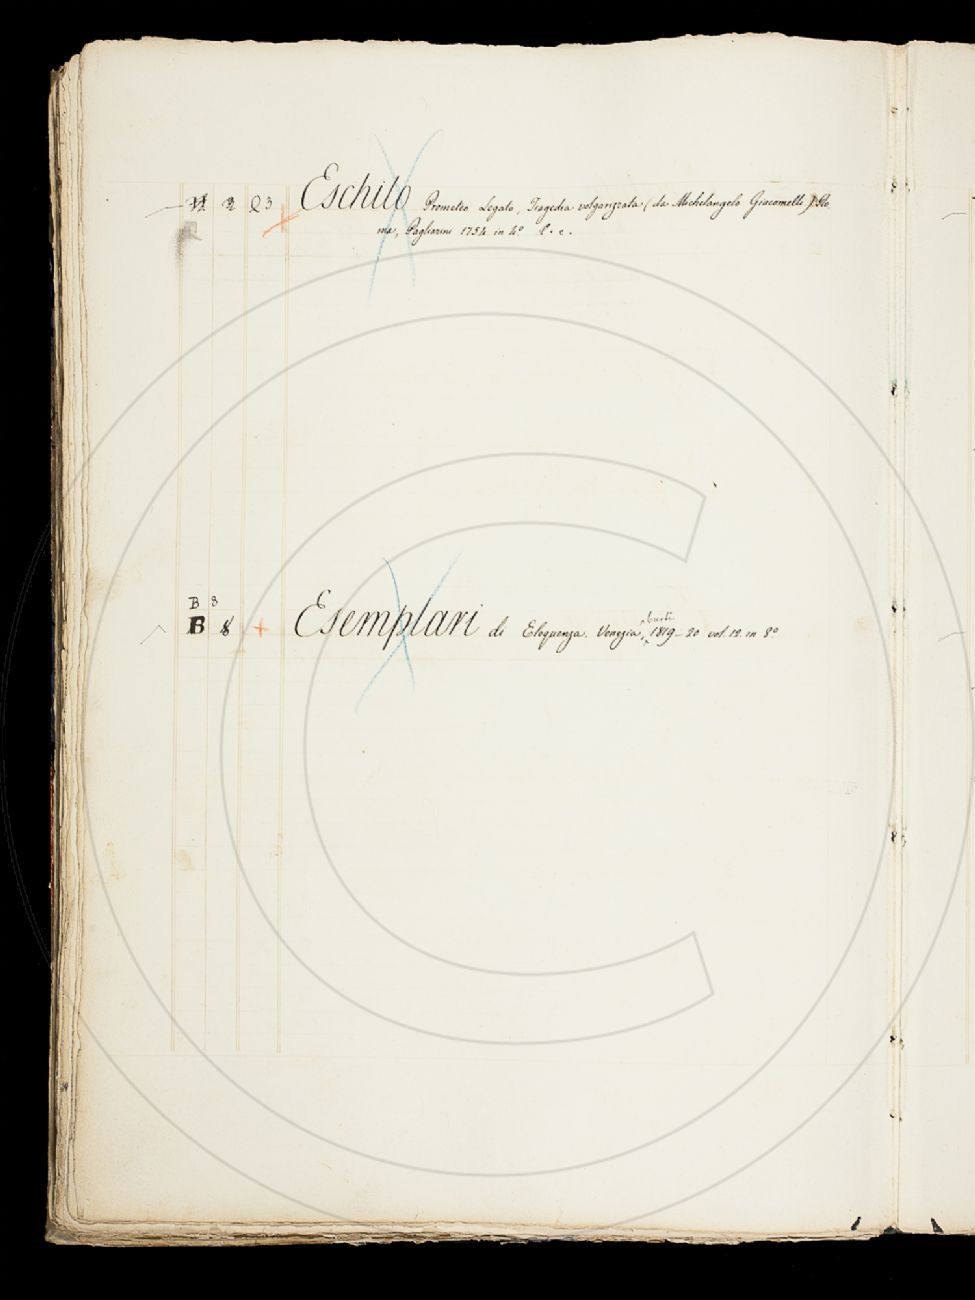 Eschilo Prometeo Legato, Tragedia volgarizzata (da Michelangelo Giacomelli) Ro
ma, Pagliarini 1754 in 4º
B 8
B 8 + Esemplari di Eloquenza. Venezia, 1819-20 vol. 12. in 8º